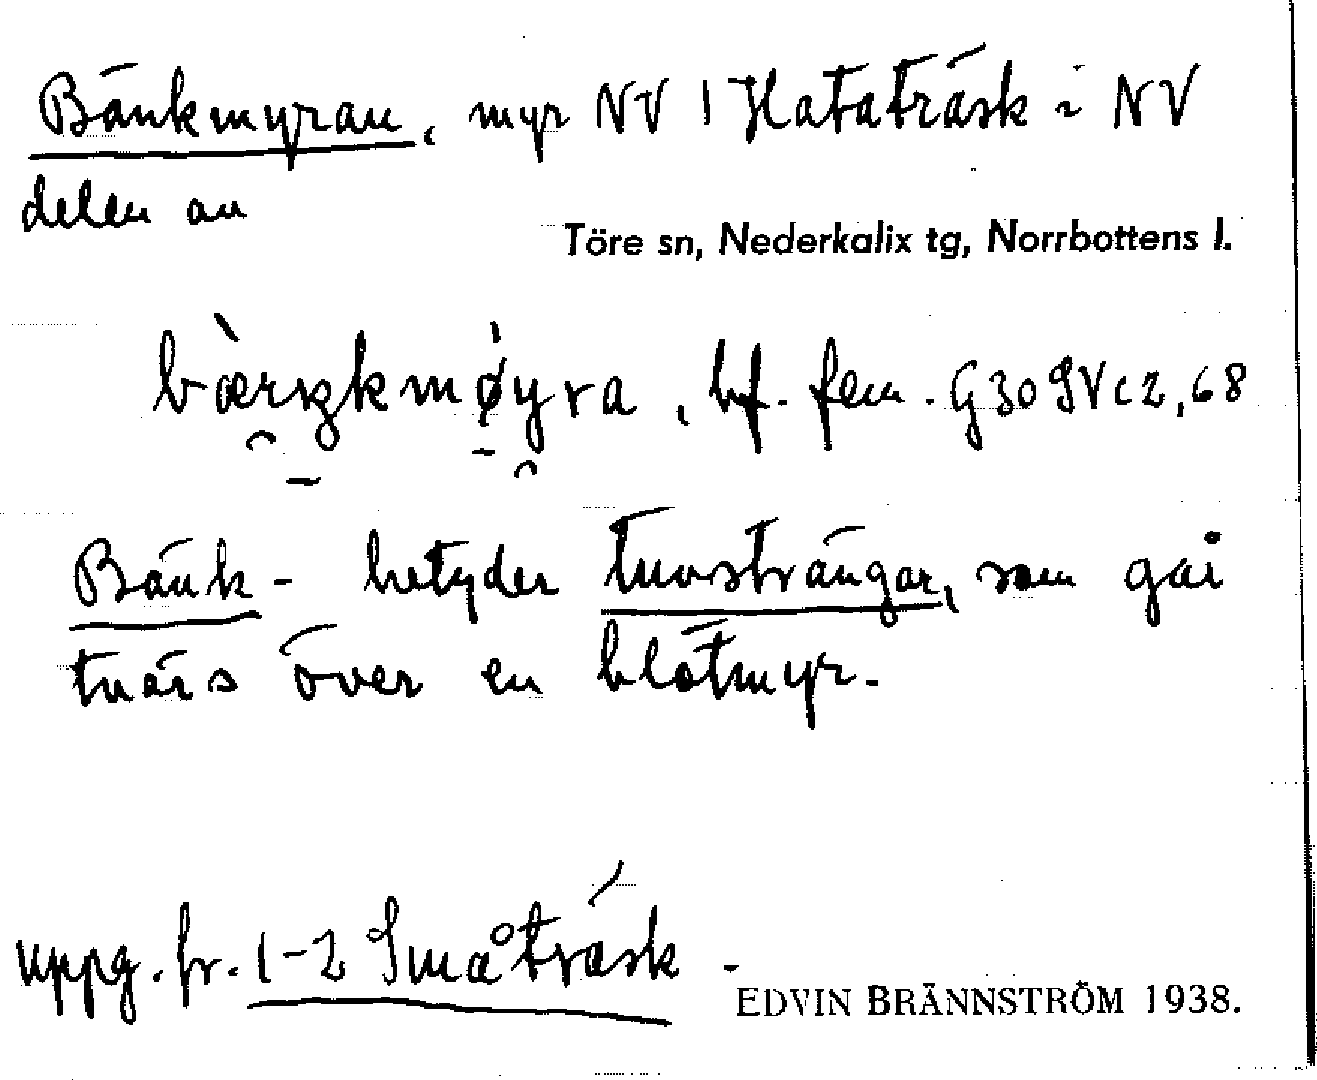 Bänkmyran, myr NV 1 Hataträsk i NV
delen av
Töre sn, Nederkalix tg, Norrbottens l.
bf. fem. G30SVc2,68
Bänk- betyder tuvsträngar, som går
tvärs över en blötmyr.
uppg. fr. 1-2 Småträsk -
EDVIN BRÄNNSTRÖM 1938.